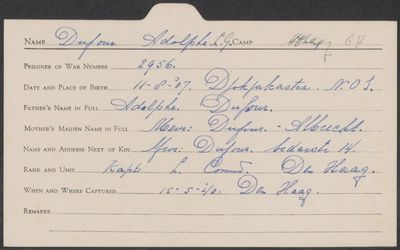 NAME Dufour Adolphe. L.G. CAMP 67
PRISONER OF WAR NUMBER 2956.
DATE AND PLACE OF BIRTH 11-8-'07. Djokjakarta. N.O.I.
FATHER'S NAME IN FULL Adolphe. Dufour.
MOTHER'S MAIDEN NAME IN FULL Mevr: Dufour. - Albrecht.
NAME AND ADDRESS NEXT OF KIN Mevr: Dufour. 14.
RANK AND UNIT Kapt: L. Den Haag.
WHEN AND WHERE CAPTURED 15-5-'40. Den Haag.
REMARKS